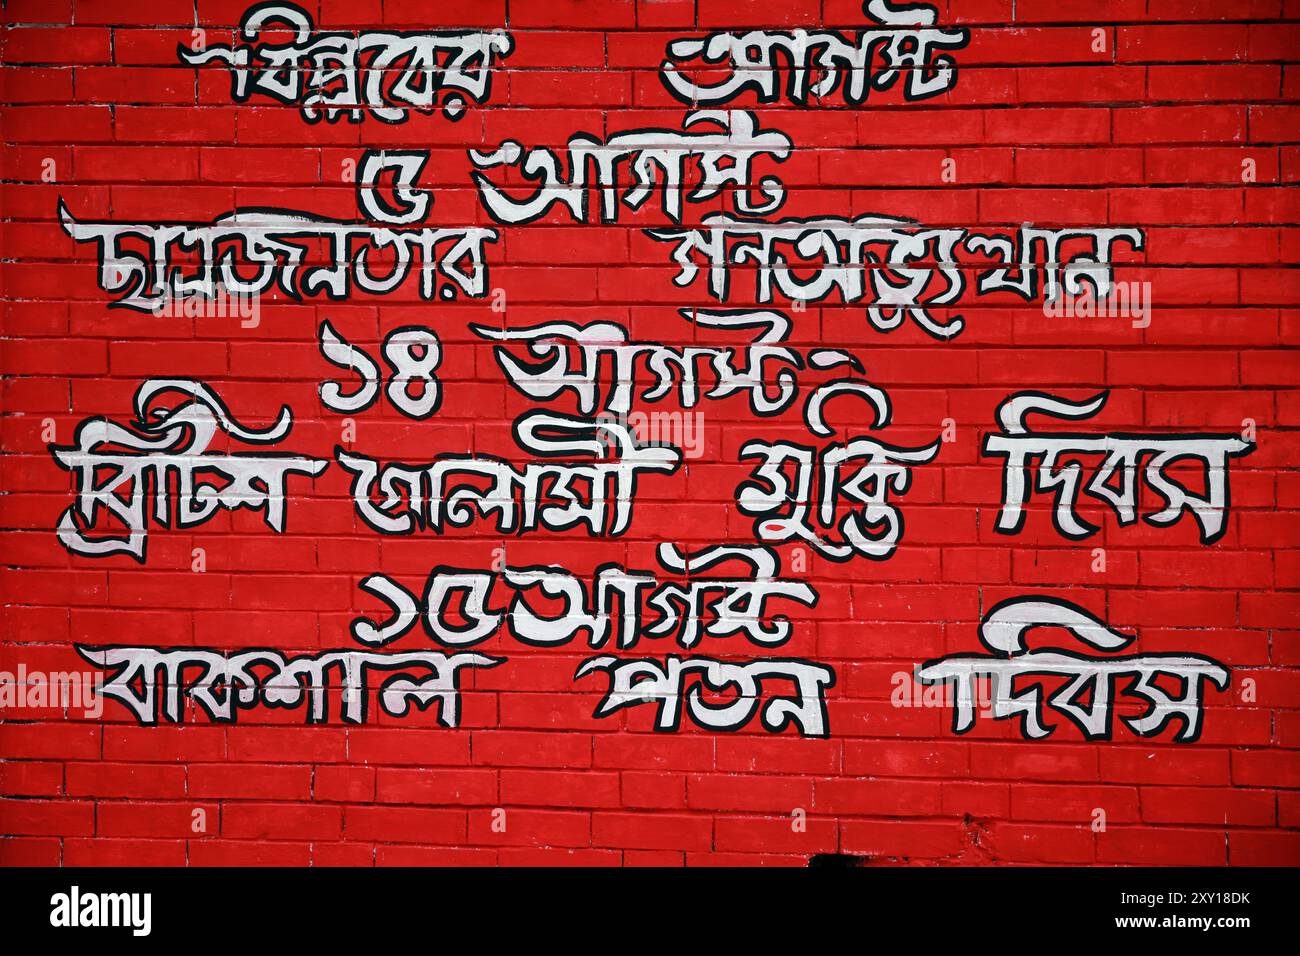 বিপ্লবের আগস্ট
৫ আগস্ট
ছাত্রজনতার গনঅভ্যুত্থান
১৪ আগস্ট
ব্রিটিশ গোলামী মুক্তি দিবস
১৫ আগষ্ট
বাকশাল পতন দিবস
alamy
Image ID: 2XY18DK
www.alamy.com